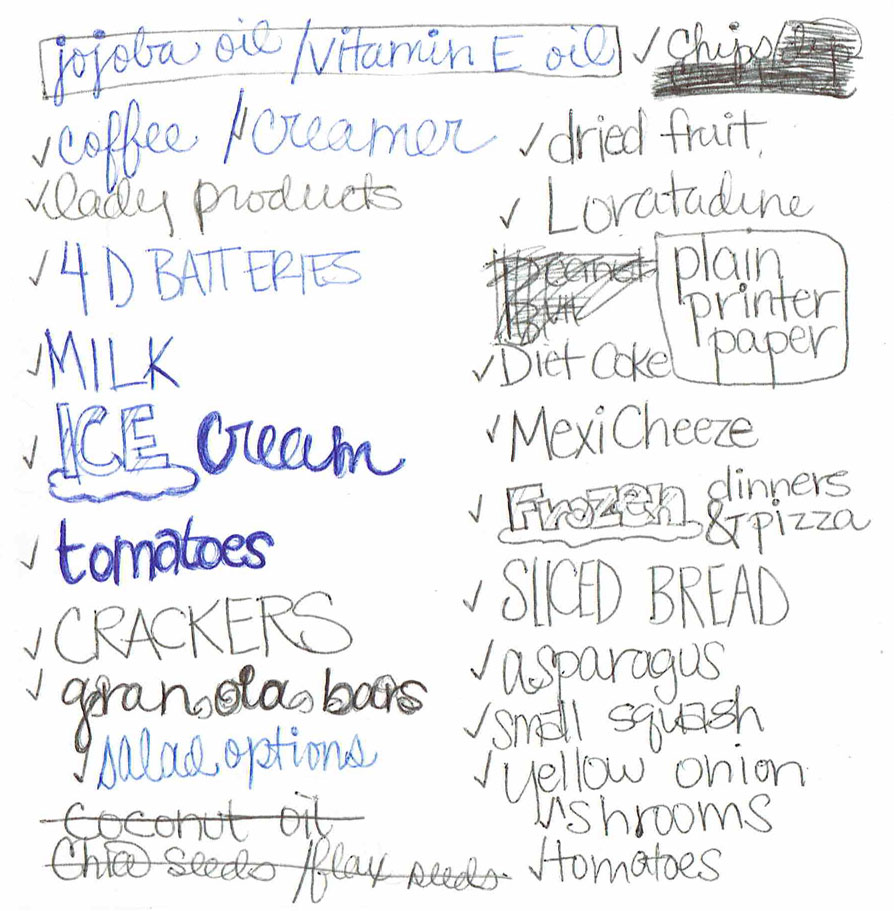 jojoba oil / Vitamin E oil
✓coffee / ✓creamer
✓lady products
✓4 D BATTERIES
✓MILK
✓ICE cream
✓tomatoes
✓CRACKERS
✓granola bars
✓salad options
Coconut oil
Chia seeds / flax seeds
✓Chips/dip
✓dried fruit
✓Loratadine
Peanut
Butt
plain
printer
paper
✓Diet Coke
✓MexiCheeze
✓Frozen dinners
& pizza
✓SLICED BREAD
✓asparagus
✓small squash
✓yellow onion
✓shrooms
✓tomatoes